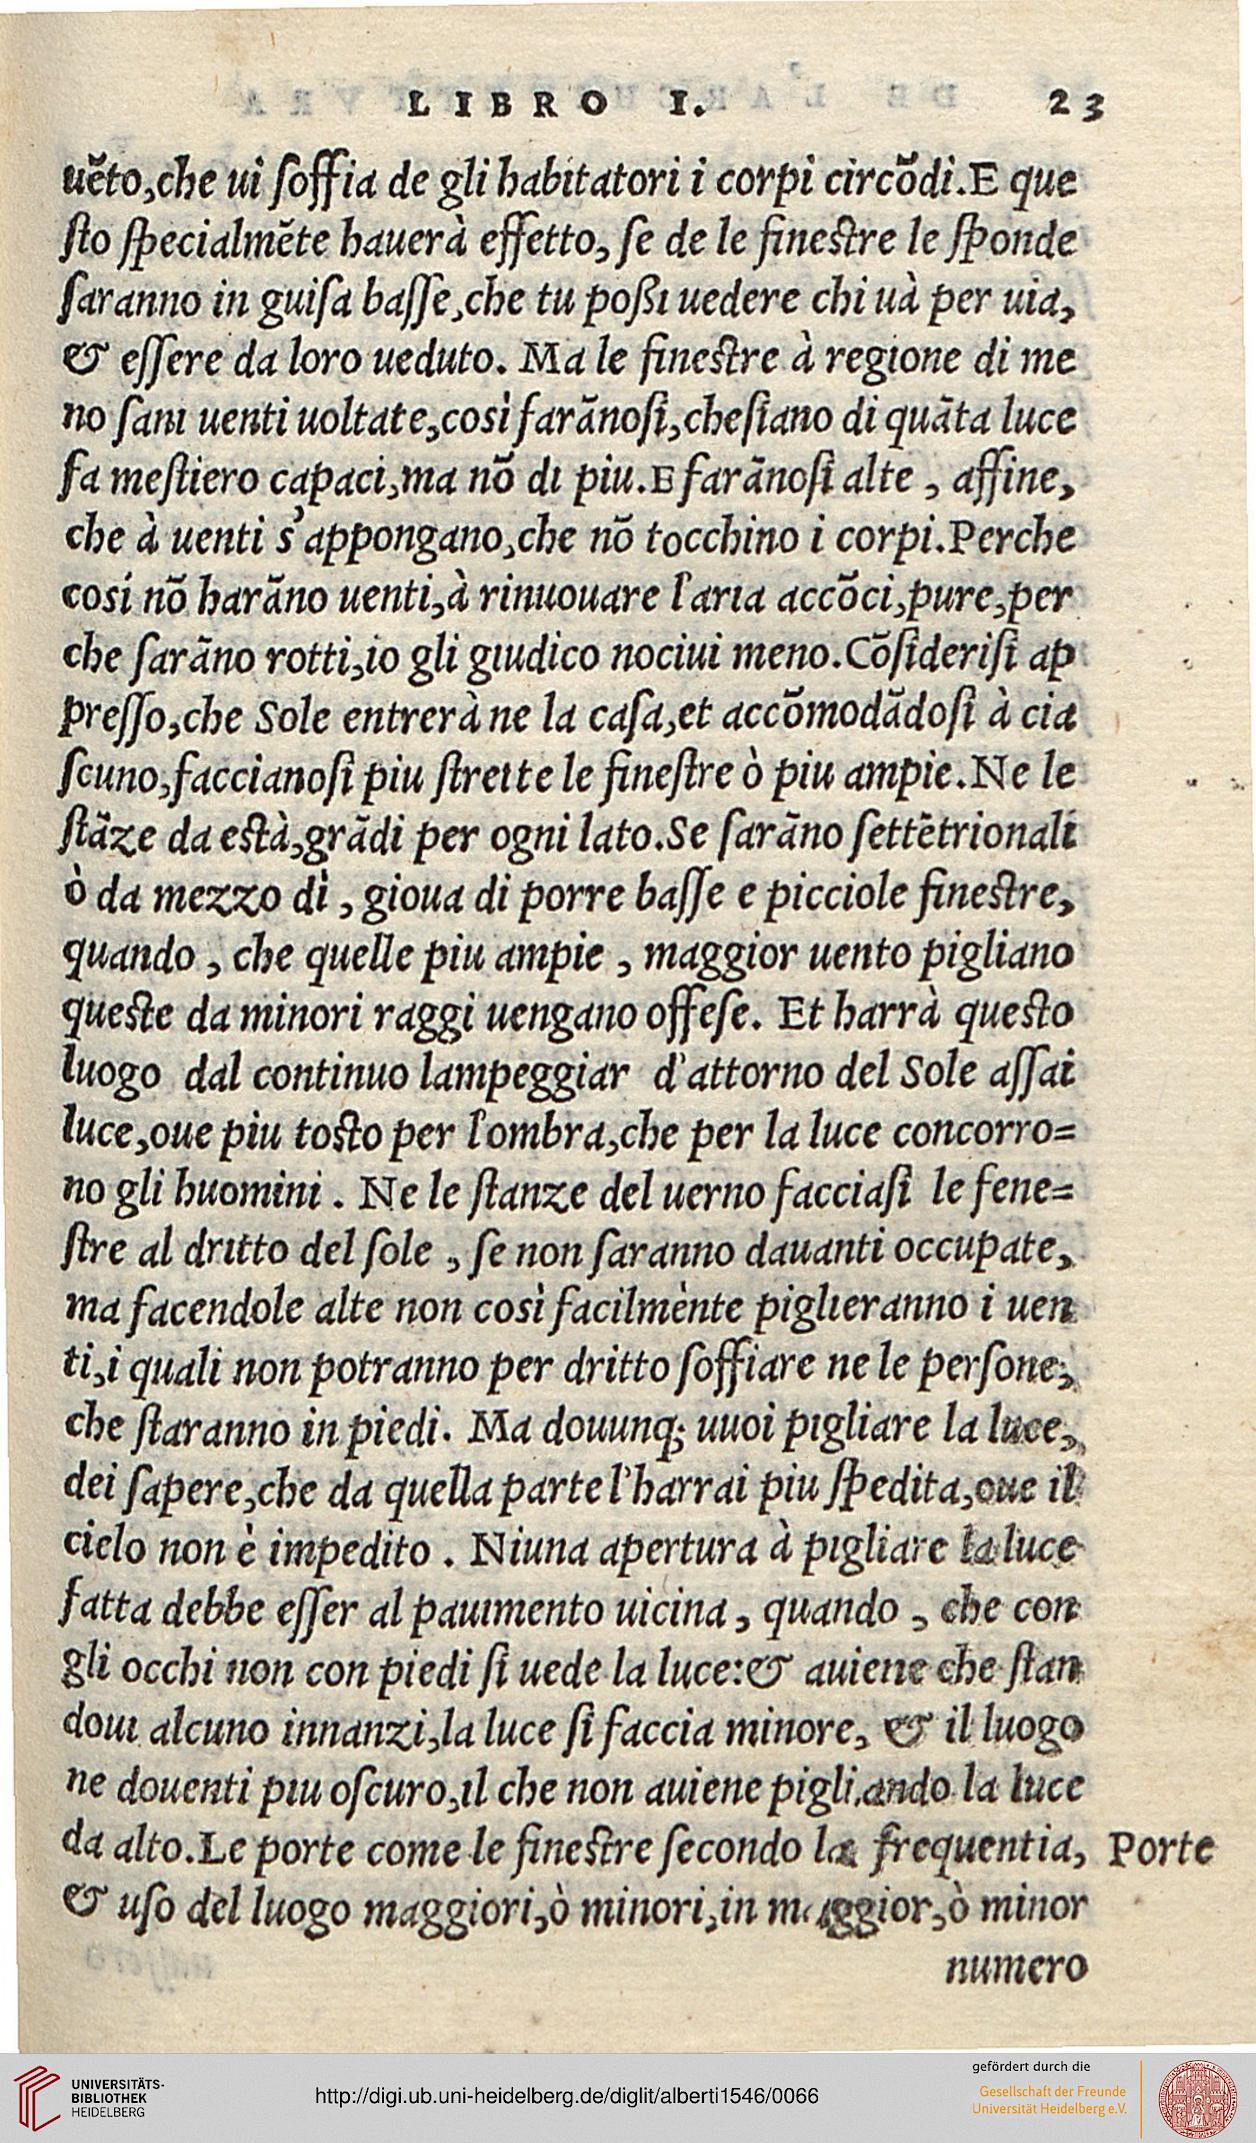 LIBRO I. 23
uẽto,che ui ſoffia de gli habitatori i corpi circõdi.E que
ſto ſpecialmẽte hauerà effetto, ſe de le fineſtre le ſponde
ſaranno in guiſa baſſe,che tu poßi uedere chi uà per uia,
& eſſere da loro ueduto. Ma le fineſtre à regione di me
no ſani uenti uoltate,così farãnoſi,cheſiano di quãta luce
fa meſtiero capaci,ma nõ di piu.E farãnoſi alte , affine,
che à uenti s'appongano,che nõ tocchino i corpi.Perche
cosí nõ harãno uenti,à rinuouare l'aria accõci,pure,per
che ſarãno rotti,io gli giudico nociui meno.Cõſideriſi ap
preſſo,che Sole entrerà ne la caſa,et accõmodãdoſi à cia
ſcuno,faccianoſi piu ſtrette le fineſtre ò piu ampie.Ne le
ſtãze da eſtà,grãdi per ogni lato.Se ſarãno ſettẽtrionali
ò da mezzo dì , gioua di porre baſſe e picciole fineſtre,
quando , che quelle piu ampie , maggior uento pigliano
queſte da minori raggi uengano offeſe. Et harrà queſto
luogo dal continuo lampeggiar d'attorno del Sole aſſai
luce,oue piu toſto per l'ombra,che per la luce concorro=
no gli huomini . Ne le ſtanze del uerno facciaſi le fene=
ſtre al dritto del ſole , ſe non ſaranno dauanti occupate,
ma facendole alte non così facilmènte piglieranno i uen
ti,i quali non potranno per dritto ſoffiare ne le perſone,
che ſtaranno in piedi. Ma douunq; uuoi pigliare la luce,
dei ſapere,che da quella parte l'harrai piu ſpedita,oue il
cielo non è impedito . Niuna apertura à pigliare la luce
fatta debbe eſſer al pauimento uicina , quando , che con
gli occhi non con piedi ſi uede la luce:& auiene che ſtan
doui alcuno innanzi,la luce ſi faccia minore, & il luogo
ne douenti piu oſcuro,il che non auiene pigliando la luce
da alto.Le porte come le fineſtre ſecondo la frequentia, Porte
& uſo del luogo maggiori,ò minori,in maggior,ò minor
numero
UNIVERSITÄTS-
BIBLIOTHEK
HEIDELBERG
http://digi.ub.uni-heidelberg.de/diglit/alberti1546/0066
gefördert durch die
Gesellschaft der Freunde
Universität Heidelberg e.V.